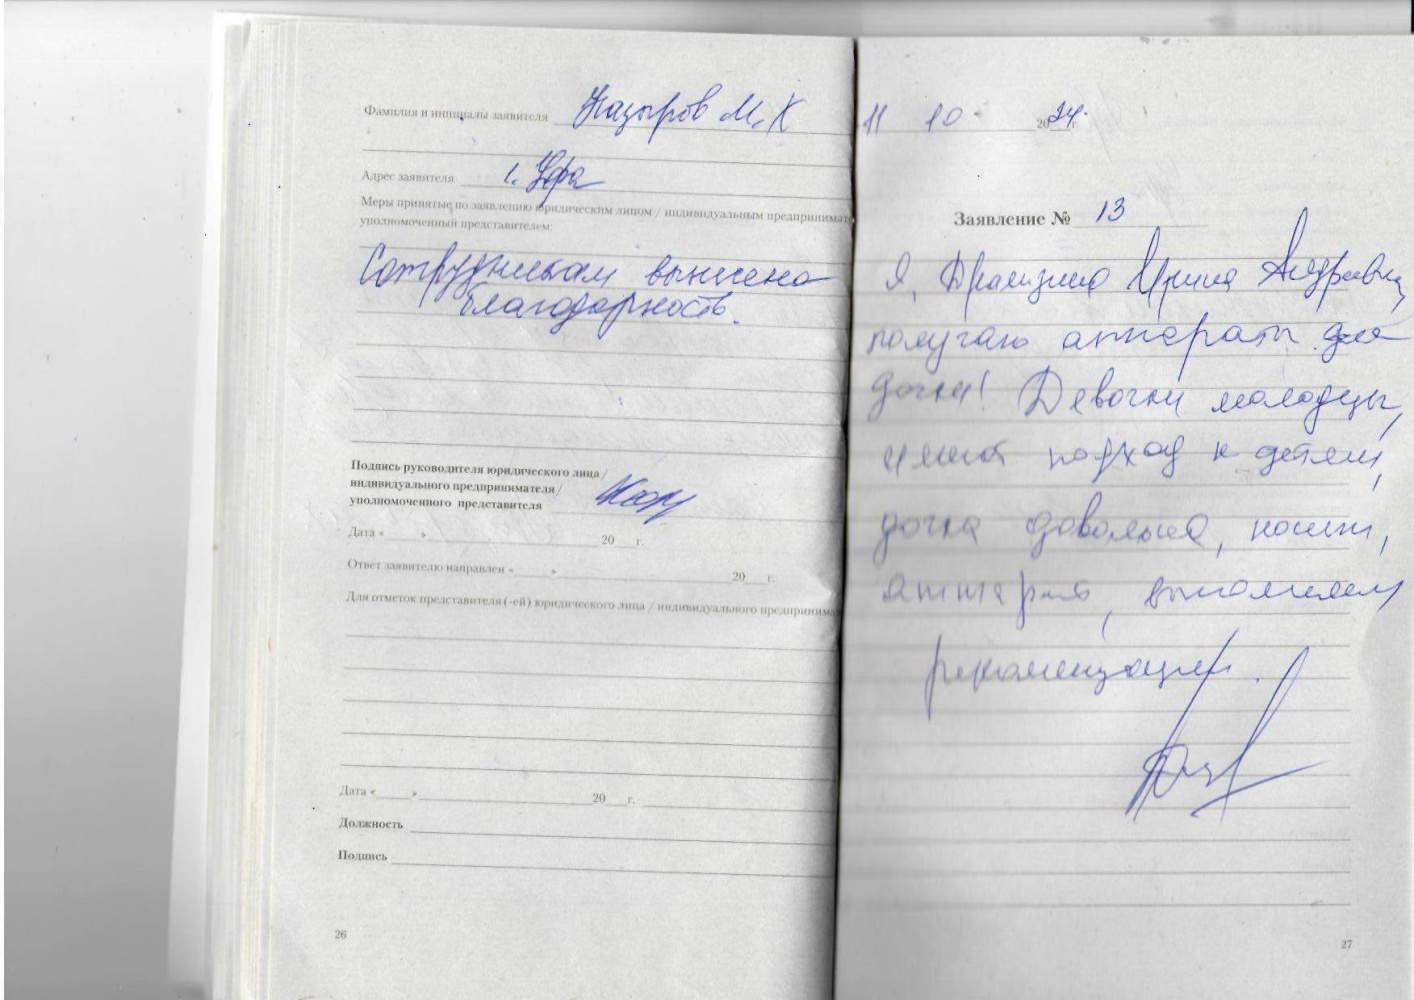 Фамилия и инициалы заявителя Назыров М. Х
Адрес заявителя г. Уфа
Меры принятые по заявлению юридическим лицом / индивидуальным предпринимат
уполномоченный представителем:
Сотрудникам вынесена
благодарность.
Подпись руководителя юридического лица /
индивидуального предпринимателя /
уполномоченного представителя
Дата « » 20 г.
Ответ заявителю направлен « » 20 г.
Для отметок представителя (-ей) юридического лица / индивидуального предпринима
Дата « » 20 г.
Должность
Подпись
26
11 10 2024г.
Заявление № 13
Я, Ирина Андреевна,
получаю аппараты для
дочки! Девочки молодцы,
подход к детям,
дочка довольна, носит,
аппараты, выполняем
рекомендации.
27